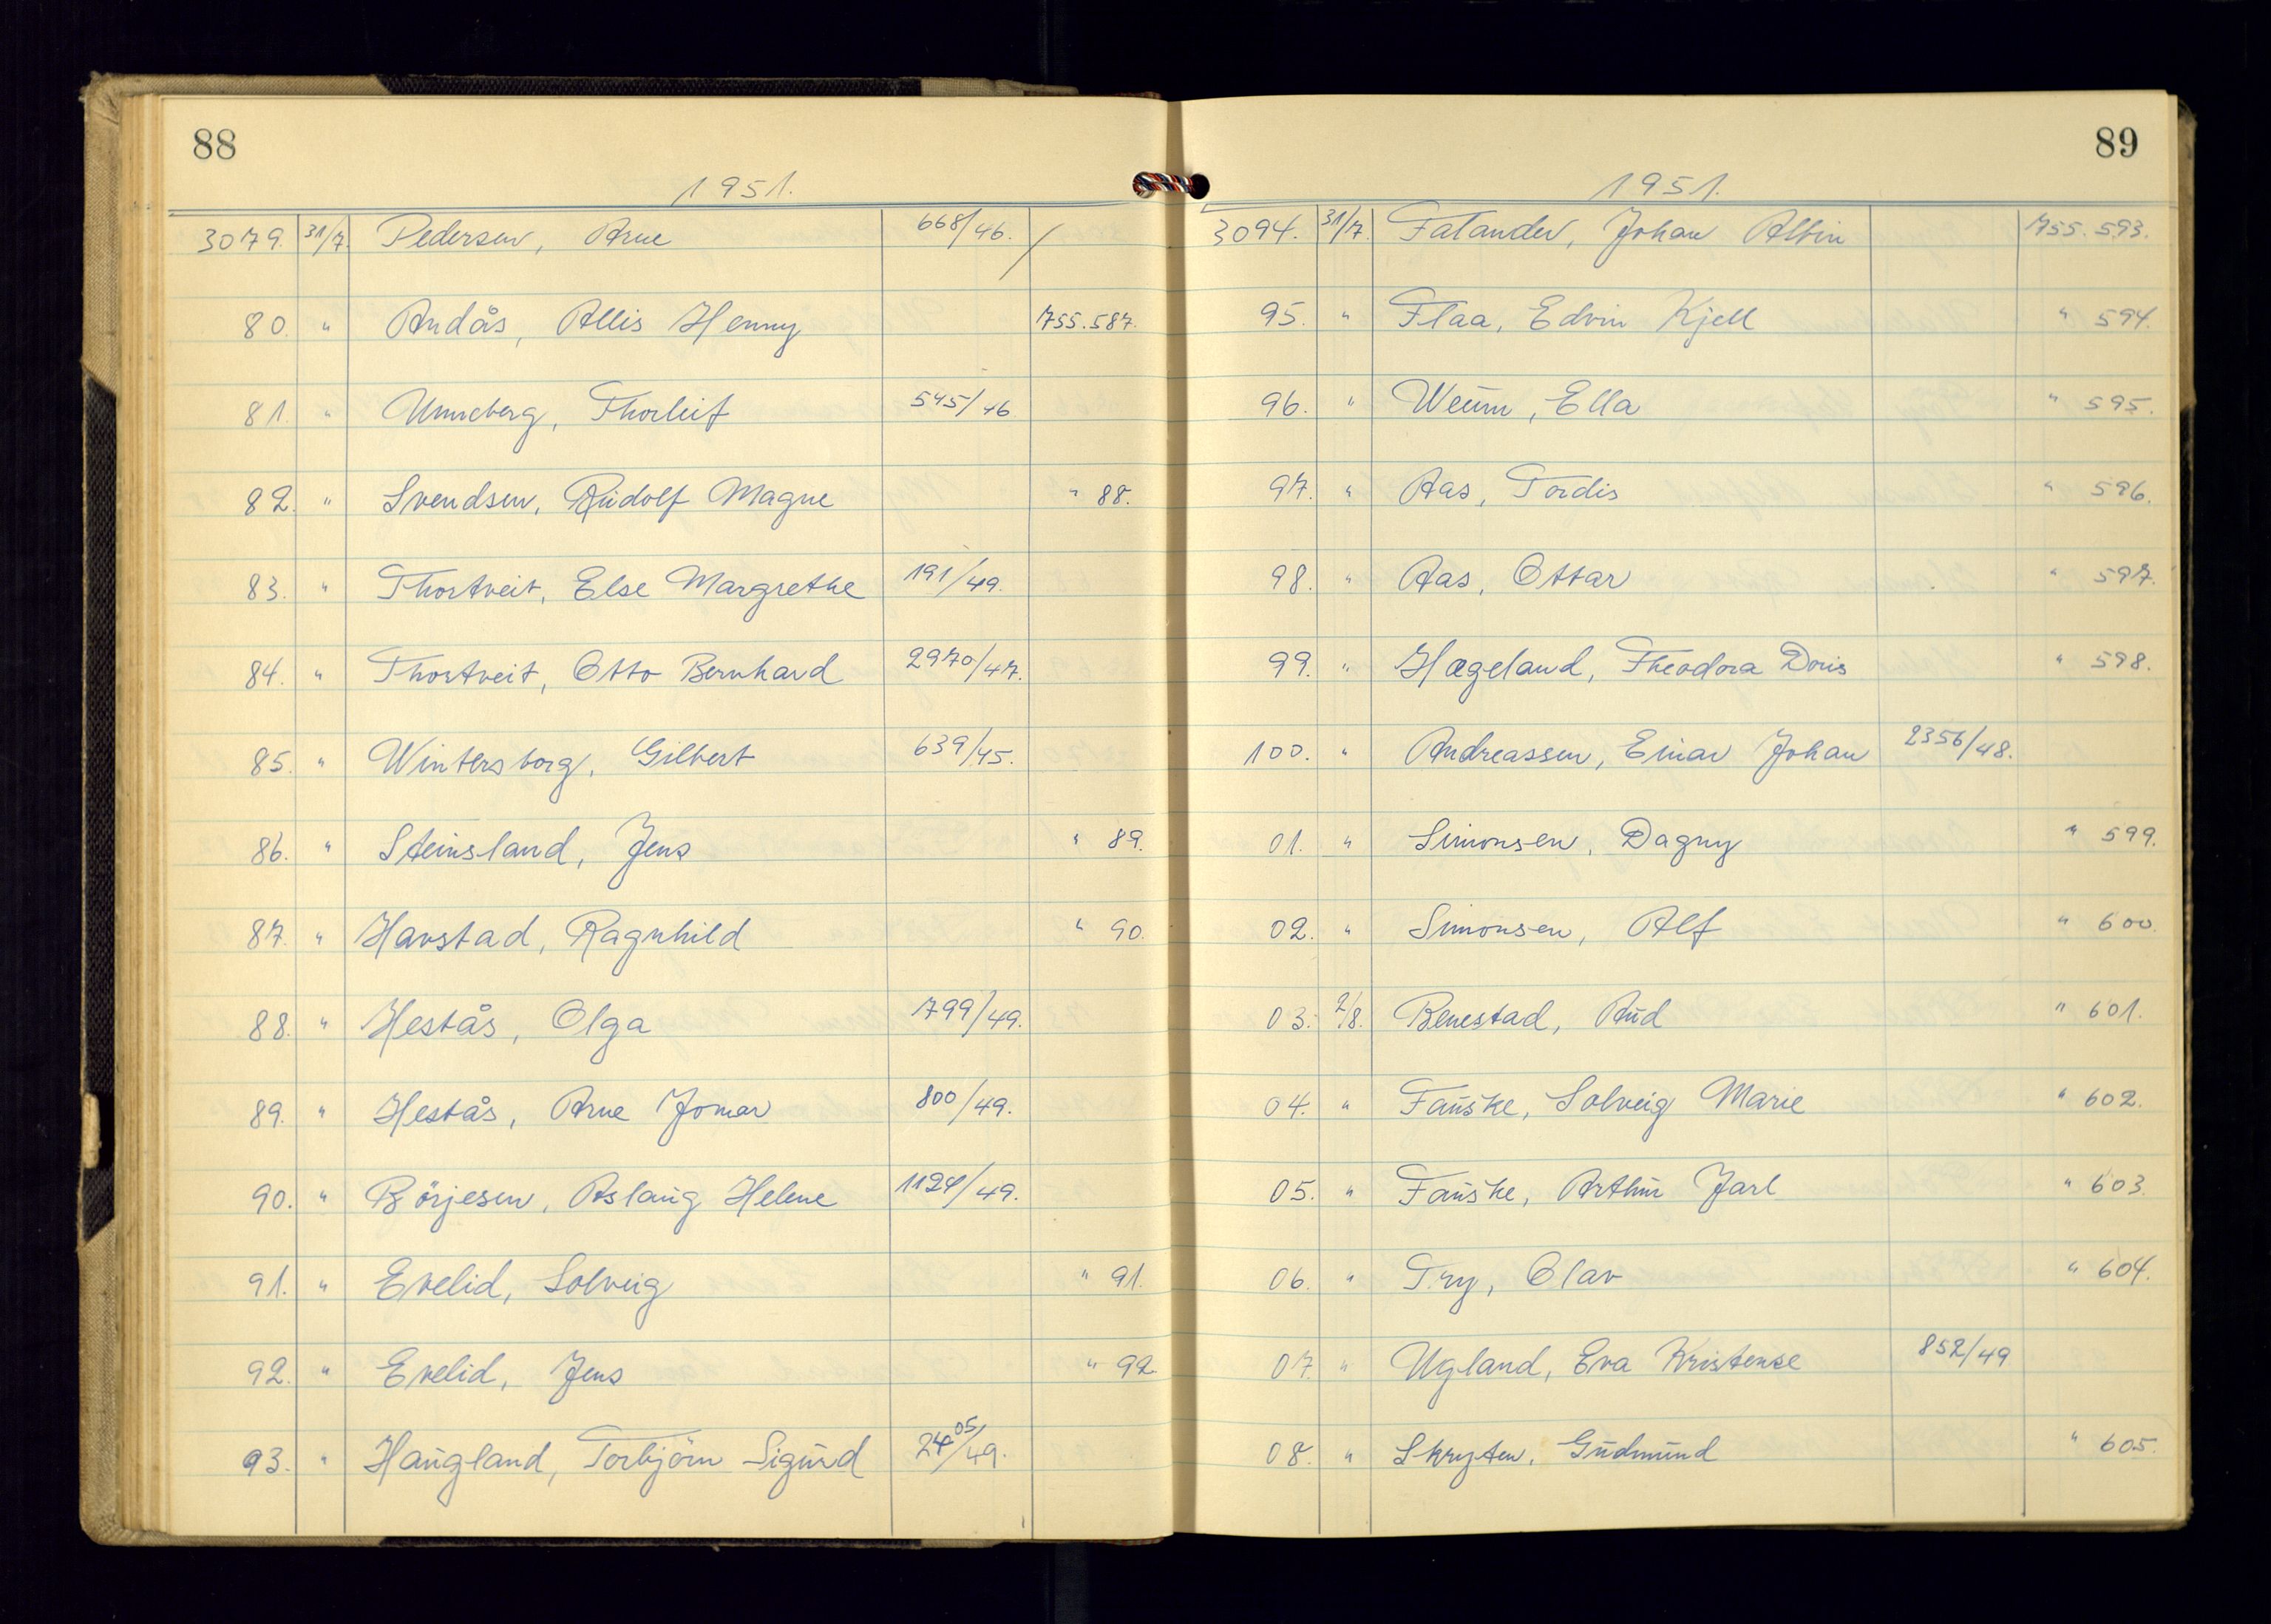 88
1951.
3079. 31/7. Pedersen, Arne 668/46. /
80. " Andås, Allis Henny 755.587.
81. " Unneberg, Thorleif 545/46
82. " Svendsen, Rudolf Magne " 88.
83. " Thortveit, Else Margrethe 191/49.
84. " Thortveit, Otto Bernhard 2970/47.
85. " Wintersborg, Gilbert 639/45.
86. " Steinsland, Jens " 89.
87. " Havstad, Ragnhild " 90.
88. " Hestås, Olga 799/49.
89. " Hestås, Arne Jomar 800/49.
90. " Börjesen, Aslaug Helene 1124/49.
91. " Evelid, Solveig " 91.
92. " Evelid, Jens " 92.
93. " Haugland, Torbjörn Sigurd 2405/49.
89
1951.
3094. 31/7. Falander, Johan Albin 755.593.
95. " Flaa, Edvin Kjell " 594.
96. " Weum, Ella " 595.
97. " Aas, Tordis " 596.
98. " Aas, Ottar " 597.
99. " Hægeland, Theodora Doris " 598.
100. " Andreassen, Einar Johan 2356/48.
01. " Simonsen, Dagny " 599.
02. " Simonsen, Alf " 600.
03. 2/8. Benestad, Aud " 601.
04. " Fauske, Solveig Marie " 602.
05. " Fauske, Arthur Jarl " 603.
06. " Try, Olav " 604.
07. " Ugland, Eva Kristense 852/49
08. " Skryten, Gudmund " 605.